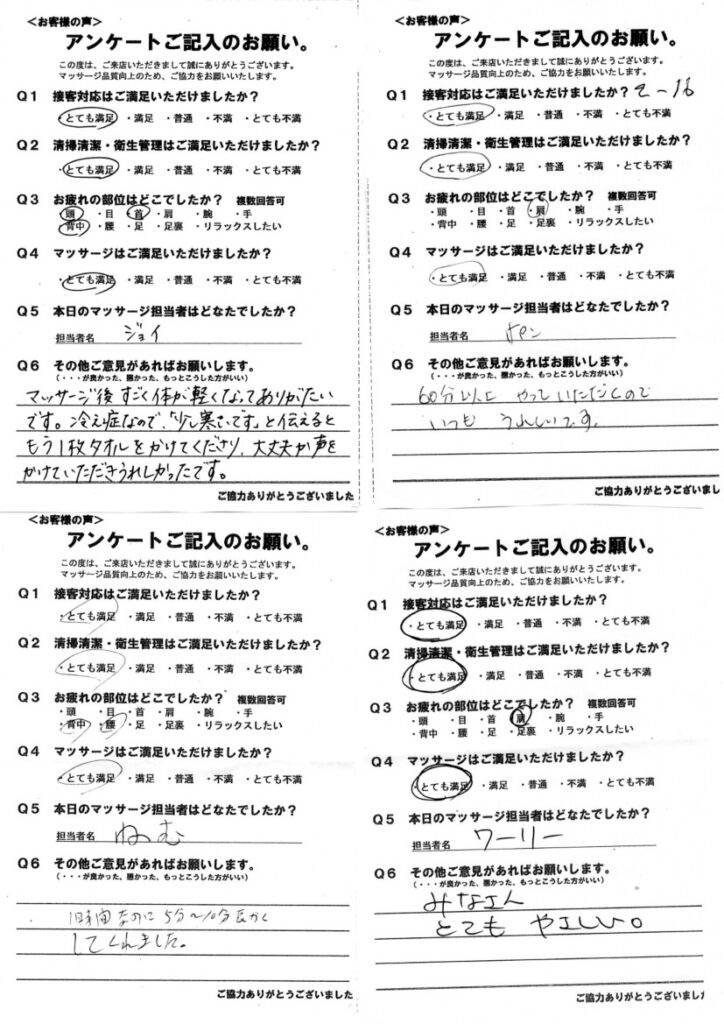 ＜お客様の声＞
アンケートご記入のお願い。
この度は、ご来店いただきまして誠にありがとうございます。
マッサージ品質向上のため、ご協力をお願いいたします。
Q1 接客対応はご満足いただけましたか？
・とても満足 ・満足 ・普通 ・不満 ・とても不満
Q2 清掃清潔・衛生管理はご満足いただけましたか？
・とても満足 ・満足 ・普通 ・不満 ・とても不満
Q3 お疲れの部位はどこでしたか？ 複数回答可
・頭 ・目 ・首 ・肩 ・腕 ・手
・背中 ・腰 ・足 ・足裏 ・リラックスしたい
Q4 マッサージはご満足いただけましたか？
・とても満足 ・満足 ・普通 ・不満 ・とても不満
Q5 本日のマッサージ担当者はどなたでしたか？
担当者名 ジョイ
Q6 その他ご意見があればお願いします。
（・・・が良かった、悪かった、もっとこうした方がいい）
マッサージ後すごく体が軽くなってありがたい
です。冷え症なので、「少し寒いです」と伝えると
もう1枚タオルをかけてくださり、大丈夫か声を
かけていただきうれしかったです。
ご協力ありがとうございました
＜お客様の声＞
アンケートご記入のお願い。
この度は、ご来店いただきまして誠にありがとうございます。
マッサージ品質向上のため、ご協力をお願いいたします。
Q1 接客対応はご満足いただけましたか？
・とても満足 ・満足 ・普通 ・不満 ・とても不満
Q2 清掃清潔・衛生管理はご満足いただけましたか？
・とても満足 ・満足 ・普通 ・不満 ・とても不満
Q3 お疲れの部位はどこでしたか？ 複数回答可
・頭 ・目 ・首 ・肩 ・腕 ・手
・背中 ・腰 ・足 ・足裏 ・リラックスしたい
Q4 マッサージはご満足いただけましたか？
・とても満足 ・満足 ・普通 ・不満 ・とても不満
Q5 本日のマッサージ担当者はどなたでしたか？
担当者名
Q6 その他ご意見があればお願いします。
（・・・が良かった、悪かった、もっとこうした方がいい）
60分以上 やっていただくので
いつも うれしいです。
ご協力ありがとうございまし
＜お客様の声＞
アンケートご記入のお願い。
この度は、ご来店いただきまして誠にありがとうございます。
マッサージ品質向上のため、ご協力をお願いいたします。
Q1 接客対応はご満足いただけましたか？
・とても満足 ・満足 ・普通 ・不満 ・とても不満
Q2 清掃清潔・衛生管理はご満足いただけましたか？
・とても満足 ・満足 ・普通 ・不満 ・とても不満
Q3 お疲れの部位はどこでしたか？ 複数回答可
・頭 ・目 ・首 ・肩 ・腕 ・手
・背中 ・腰 ・足 ・足裏 ・リラックスしたい
Q4 マッサージはご満足いただけましたか？
・とても満足 ・満足 ・普通 ・不満 ・とても不満
Q5 本日のマッサージ担当者はどなたでしたか？
担当者名 ねむ
Q6 その他ご意見があればお願いします。
（・・・が良かった、悪かった、もっとこうした方がいい）
1時間なのに 5分〜10分長かく
してくれました。
ご協力ありがとうございました
＜お客様の声＞
アンケートご記入のお願い。
この度は、ご来店いただきまして誠にありがとうございます。
マッサージ品質向上のため、ご協力をお願いいたします。
Q1 接客対応はご満足いただけましたか？
・とても満足 ・満足 ・普通 ・不満 ・とても不満
Q2 清掃清潔・衛生管理はご満足いただけましたか？
・とても満足 ・満足 ・普通 ・不満 ・とても不満
Q3 お疲れの部位はどこでしたか？ 複数回答可
・頭 ・目 ・首 ・肩 ・腕 ・手
・背中 ・腰 ・足 ・足裏 ・リラックスしたい
Q4 マッサージはご満足いただけましたか？
・とても満足 ・満足 ・普通 ・不満 ・とても不満
Q5 本日のマッサージ担当者はどなたでしたか？
担当者名 ワーリー
Q6 その他ご意見があればお願いします。
（・・・が良かった、悪かった、もっとこうした方がいい）
みなさん
とても やさしい。
ご協力ありがとうございました